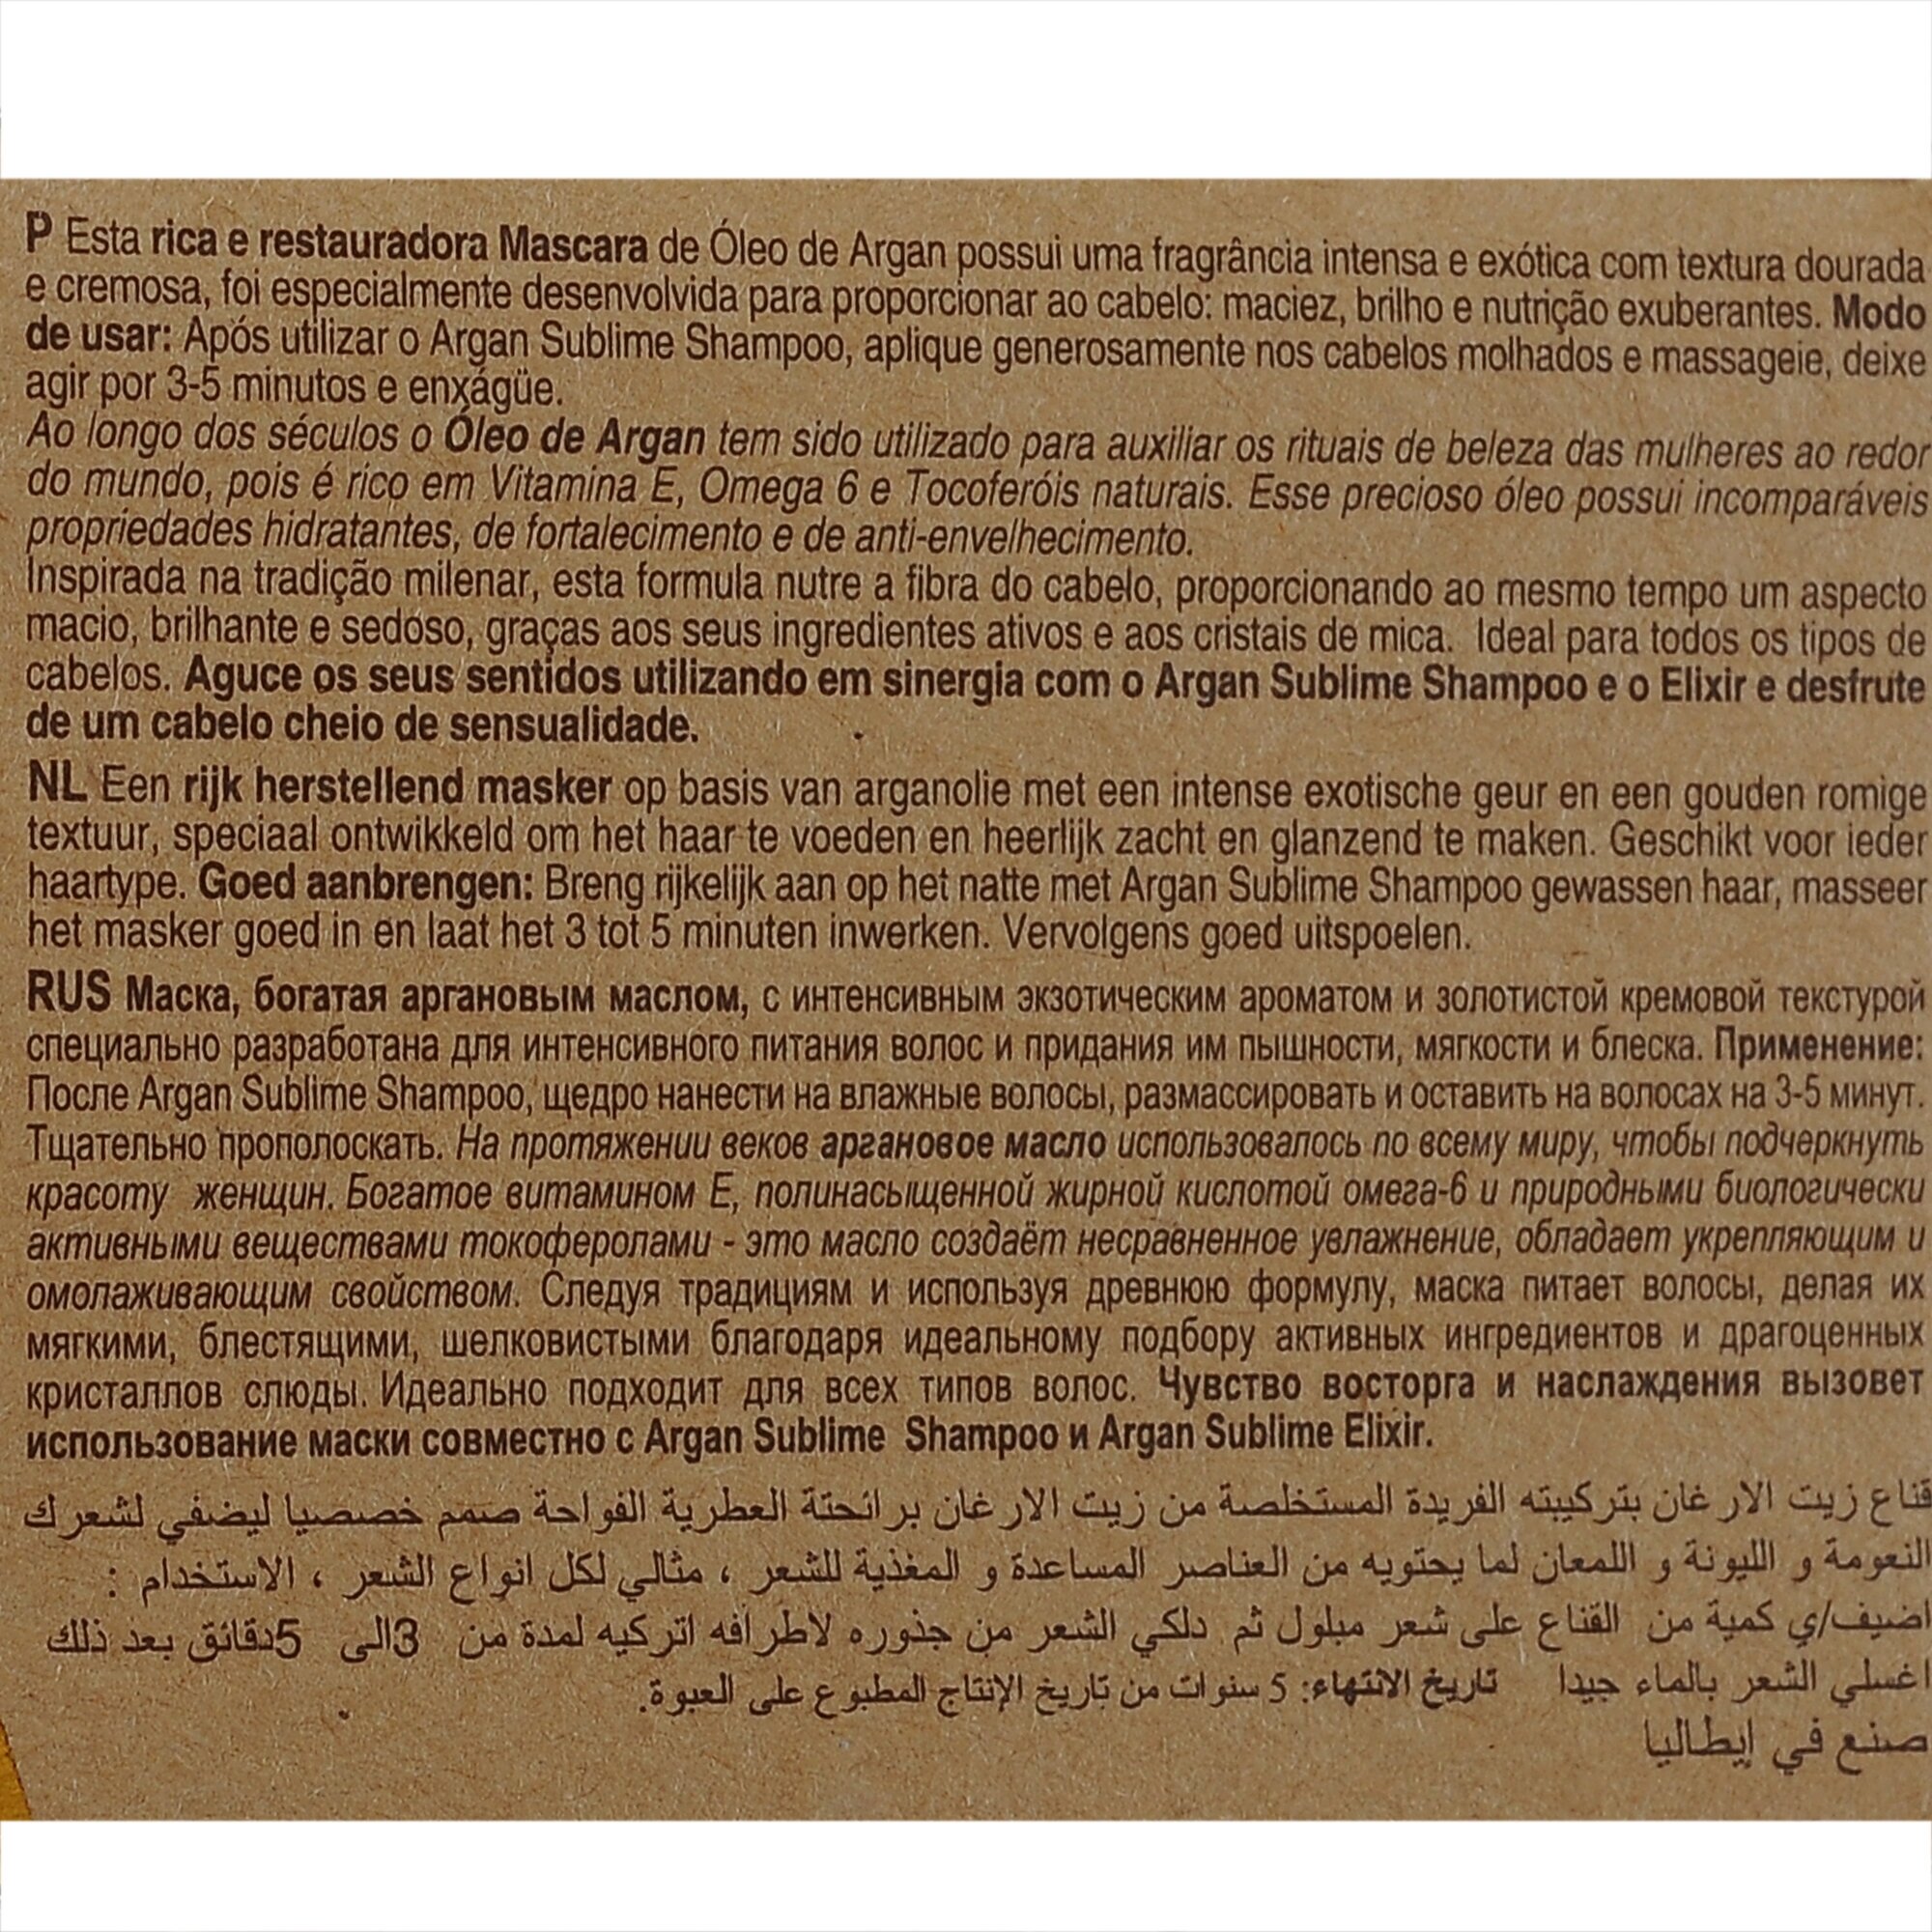 P Esta rica e restauradora Mascara de Óleo de Argan possui uma fragrância intensa e exótica com textura dourada
e cremosa, foi especialmente desenvolvida para proporcionar ao cabelo: maciez, brilho e nutrição exuberantes. Modo
de usar: Após utilizar o Argan Sublime Shampoo, aplique generosamente nos cabelos molhados e massageie, deixe
agir por 3-5 minutos e enxágüe.
Ao longo dos séculos o Óleo de Argan tem sido utilizado para auxiliar os rituais de beleza das mulheres ao redor
do mundo, pois é rico em Vitamina E, Omega 6 e Tocoferóis naturais. Esse precioso óleo possui incomparáveis
propriedades hidratantes, de fortalecimento e de anti-envelhecimento.
Inspirada na tradição milenar, esta formula nutre a fibra do cabelo, proporcionando ao mesmo tempo um aspecto
macio, brilhante e sedoso, graças aos seus ingredientes ativos e aos cristais de mica. Ideal para todos os tipos de
cabelos. Aguce os seus sentidos utilizando em sinergia com o Argan Sublime Shampoo e o Elixir e desfrute
de um cabelo cheio de sensualidade.
NL Een rijk herstellend masker op basis van arganolie met een intense exotische geur en een gouden romige
textuur, speciaal ontwikkeld om het haar te voeden en heerlijk zacht en glanzend te maken. Geschikt voor ieder
haartype. Goed aanbrengen: Breng rijkelijk aan op het natte met Argan Sublime Shampoo gewassen haar, masseer
het masker goed in en laat het 3 tot 5 minuten inwerken. Vervolgens goed uitspoelen.
RUS Маска, богатая аргановым маслом, с интенсивным экзотическим ароматом и золотистой кремовой текстурой
специально разработана для интенсивного питания волос и придания им пышности, мягкости и блеска. Применение:
После Argan Sublime Shampoo, щедро нанести на влажные волосы, размассировать и оставить на волосах на 3-5 минут.
Тщательно прополоскать. На протяжении веков аргановое масло использовалось по всему миру, чтобы подчеркнуть
красоту женщин. Богатое витамином Е, полинасыщенной жирной кислотой омега-6 и природными биологически
активными веществами токоферолами - это масло создаёт несравненное увлажнение, обладает укрепляющим и
омолаживающим свойством. Следуя традициям и используя древнюю формулу, маска питает волосы, делая их
мягкими, блестящими, шелковистыми благодаря идеальному подбору активных ингредиентов и драгоценных
кристаллов слюды. Идеально подходит для всех типов волос. Чувство восторга и наслаждения вызовет
использование маски совместно с Argan Sublime Shampoo и Argan Sublime Elixir.
قناع زيت الارغان بتركيبته الفريدة المستخلصة من زيت الارغان برائحتة العطرية الفواحة صمم خصصيا ليضفي لشعرك
النعومة و الليونة و اللمعان لما يحتويه من العناصر المساعدة و المغذية للشعر ، مثالي لكل انواع الشعر ، الاستخدام :
اضيف/ي كمية من القناع على شعر مبلول ثم دلكي الشعر من جذوره لاطرافه اتركيه لمدة من 3الى 5دقائق بعد ذلك
اغسلي الشعر بالماء جيدا تاريخ الانتهاء: 5 سنوات من تاريخ الإنتاج المطبوع على العبوة.
صنع في إيطاليا